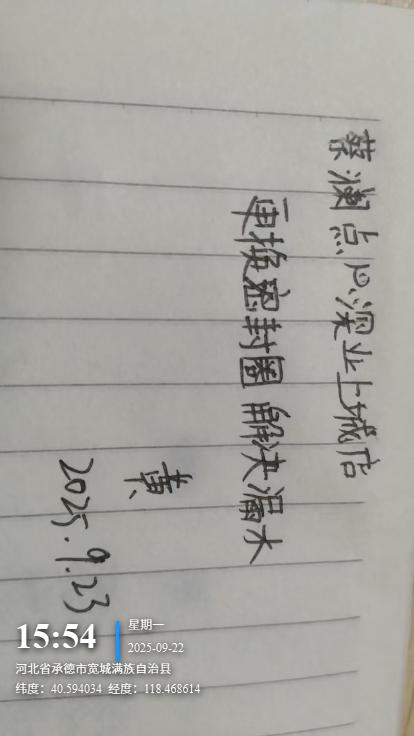 蔡澜点心深业上城店
更换密封圈解决漏水
黄
2025.9.23
15:54
星期一
2025-09-22
河北省承德市宽城满族自治县
纬度：40.594034 经度：118.468614